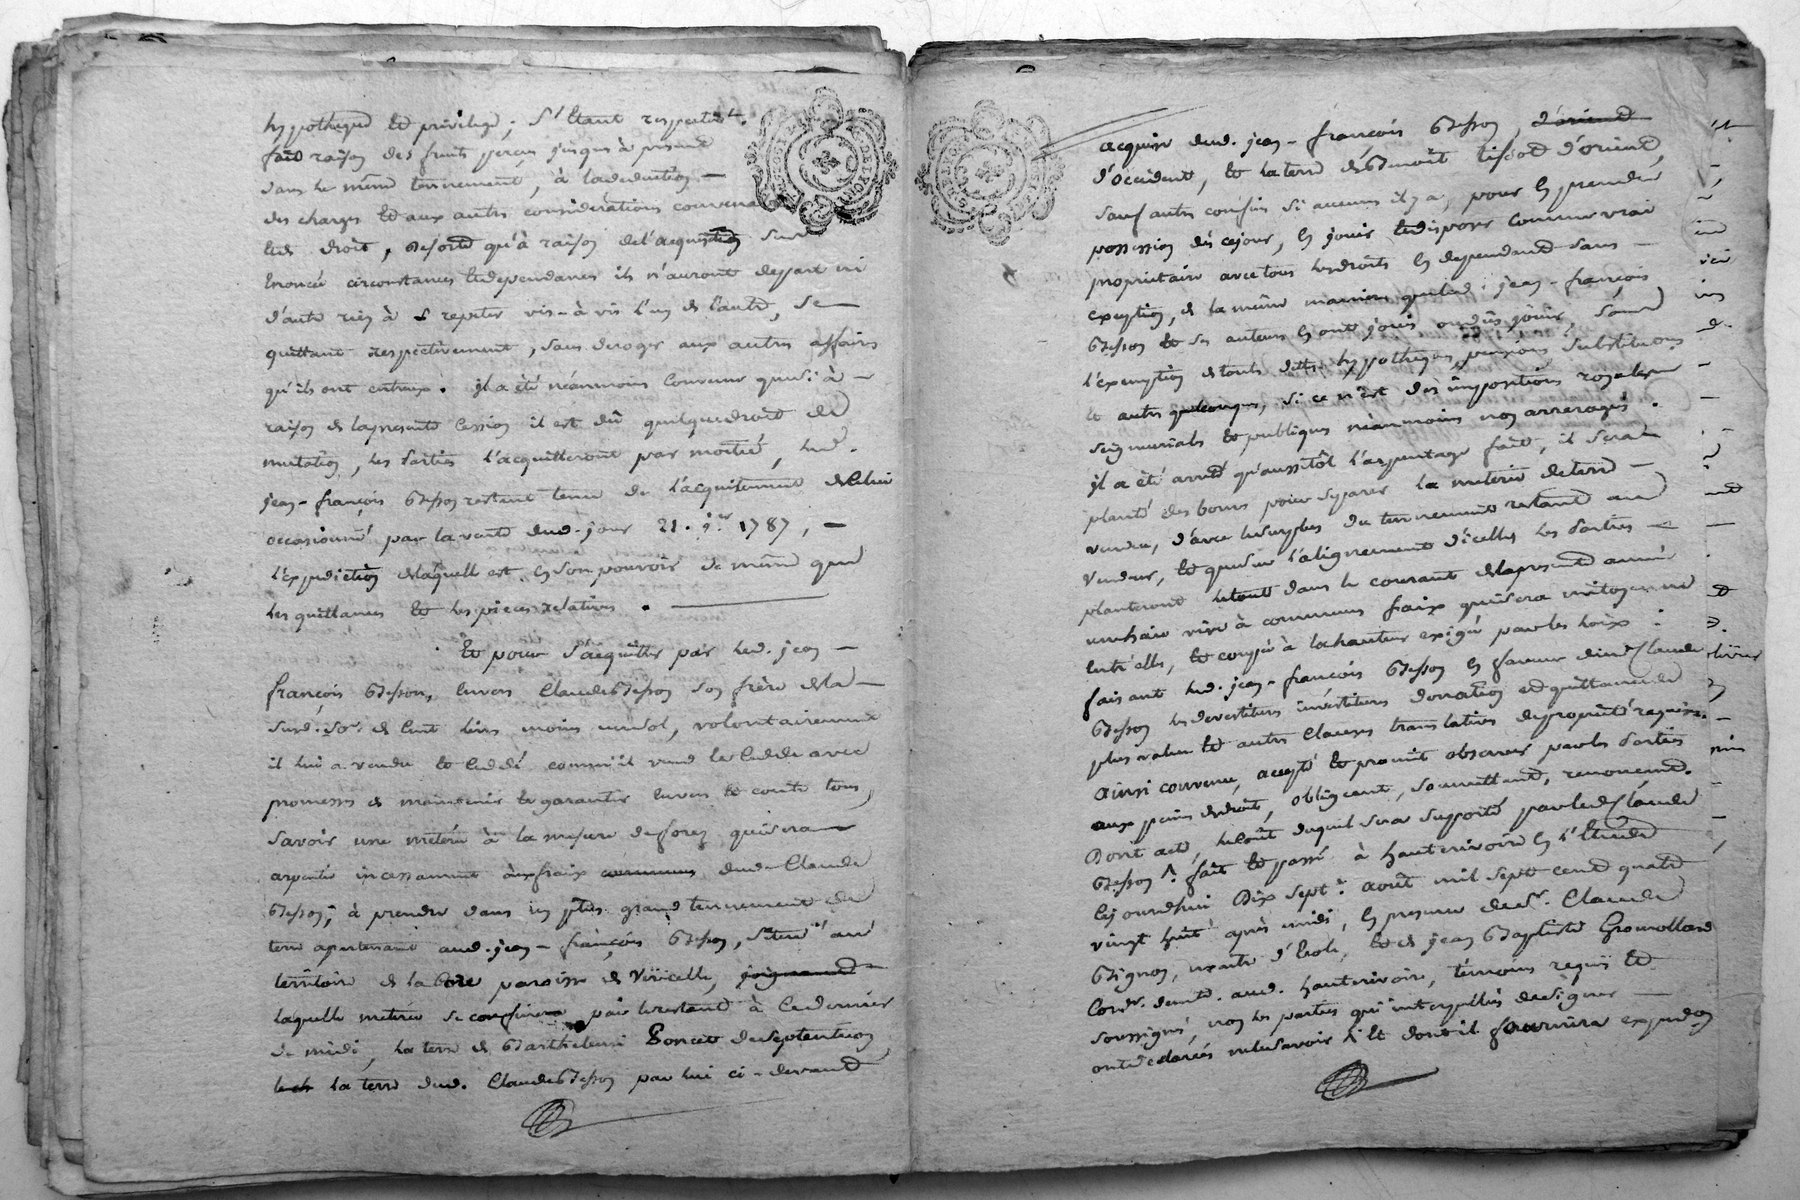 hypotheque et privilege; s'etant respectivt.
fait raison des fruits perçus jusques à present
dans le même tennement, à la deduction
des charges et aux autres considérations convena
de droit, desorte qu'à raison de l'acquisition sus
enoncée circonstances et dependances ils n'auront depart ni
d'autre rien à repeter vis-à vis l'un de l'autre, se
quittant respectivement, sans deroger aux autres affaires
qu'ils ont entreux. il a été néanmoins convenu que si à
raison de la presente cession il est dû quelque droit de
mutation, les parties l'acquitteront par moitié, led.
jean-françois Besson restant tenu de l'acquitement de celui
occasionné par la vente dud. jour 21. 1787,
l'expedition de laquelle est en son pouvoir de même que
les quittances et les pieces relatives.
Et pour s'acquitter par led. jean
françois Besson, envers Claude Besson son frère de la
susd. so. de cent livres moins un sol, volontairement
il lui a vendu et ceddé comm'il vend et cedde avec
promesses de maintenir et garantir envers et contre tous,
savoir une métérée à la mesure de forez qui sera
arpentée incessamment aux fraix communs dud. Claude
Besson, à prendre dans un plus grand tennement de
terre apartenant aud. jean-françois Besson, situé au
territoire de la paroisse de Viricelle, joignant
laquelle métérée se confinera par le restant à ce dernier
de midi, la terre de Barthelemi Poncet de septentrion
la terre dud. Claude Besson par lui ci-devant
acquise dud. jean-françois Besson, d'orient
d'occident, et la terre de Benoît tissot d'orient,
sauf autres confins si aucuns il y a, pour en prendre
possession dès cejour, en jouir et disposer comme vrai
proprietaire avec tous les droits en dependants sans
exeption, de la même maniere que led. jean-françois
Besson et ses auteurs en ont joui ou dû jouir, sous
l'exemption de touts dettes hypotheques, pensions substitutions
et autres quelconques, si ce n'est des impositions royales
seigneuriales et publiques néanmoins non arreragés.
il a été arreté qu'aussitôt l'arpentage fait, il sera
planté des bornes pour separer la métérée de terre
vendue, d'avec le surplus du tennement restant au
vendeur, et que sur l'alignement d'icelles les parties
planteront le tout dans le courant de la presente année
une haie vive à communs fraix qui sera mitoyenne
entr'elles, et coupée à la hauteur exigée par les loix:
faisant led. jean-françois Besson en faveur dud. Claude
Besson les devestitures investitures donation et quittance de
plus value et autres clauses translatives de proprieté requises.
ainsi convenu, accepté et promit observer par les parties
aux peines de droit, obligeant, soumettant, renonceant.
Dont acte, le coût duquel sera supporté par led. Claude
Besson. fait et passé à hauterivoire en l'etude
cejourdhui dix sept août mil sept cent quatre
vingt huit après midi, en presence de sr. Claude
Bignon, maitre d'ecole, et de jean Baptiste Grouollard
Cordr. demt. aud. hauterivoire, témoins requis et
soussignés, non les parties qui interpellées de signer
ont declarées ne le savoir et dont il fournira expedon